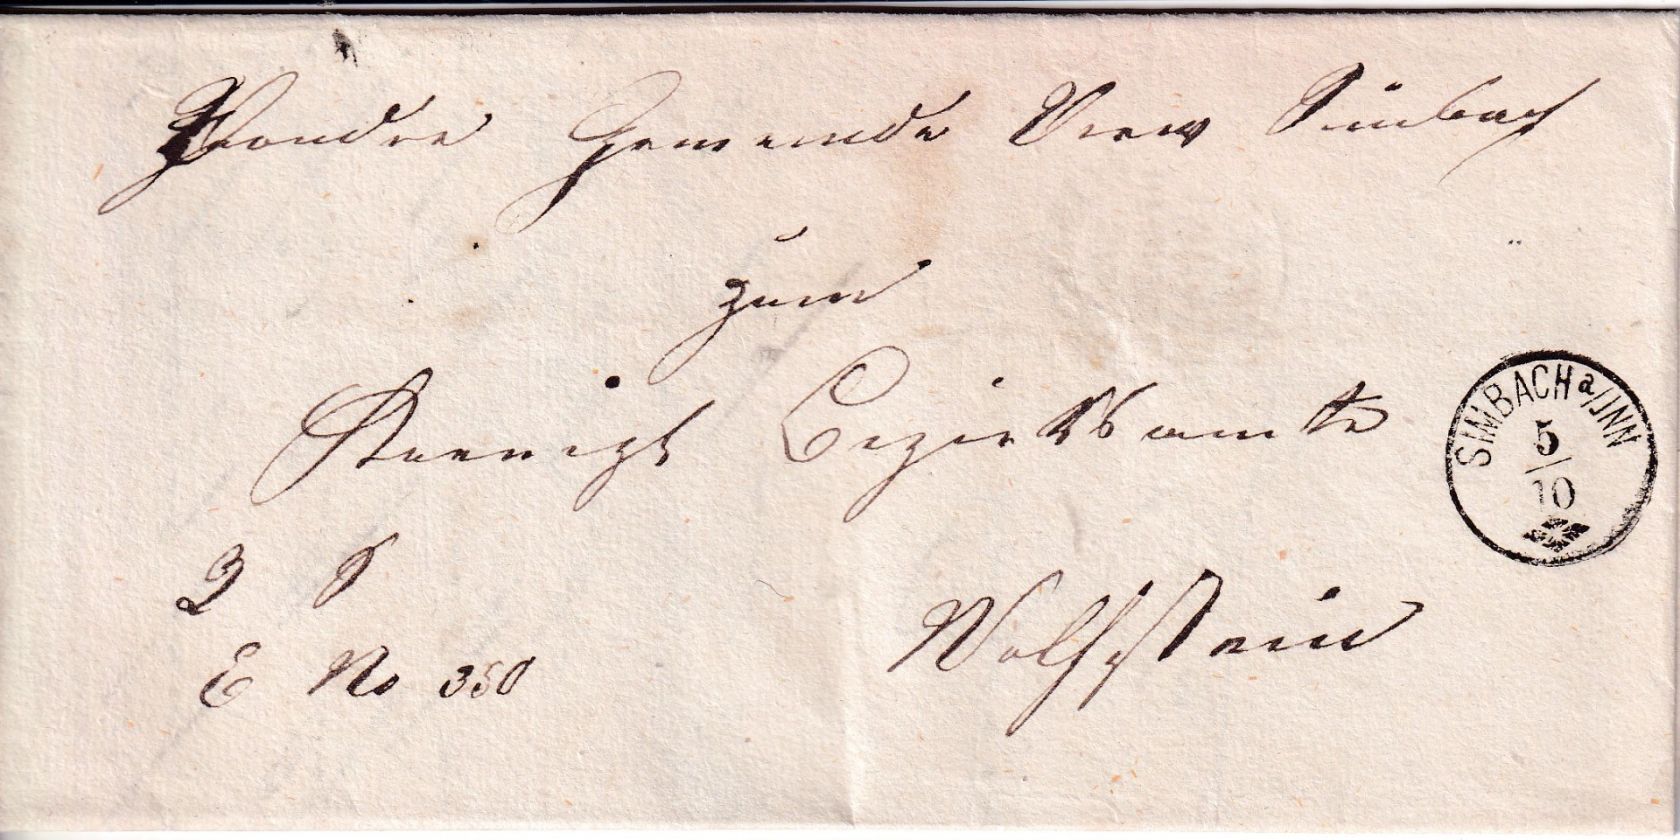 Von der Gemeinde Verw Simbach
zum
Koenigl Bezirksamte
SIMBACH a/INN
5
10
Wolfstein
E No 350